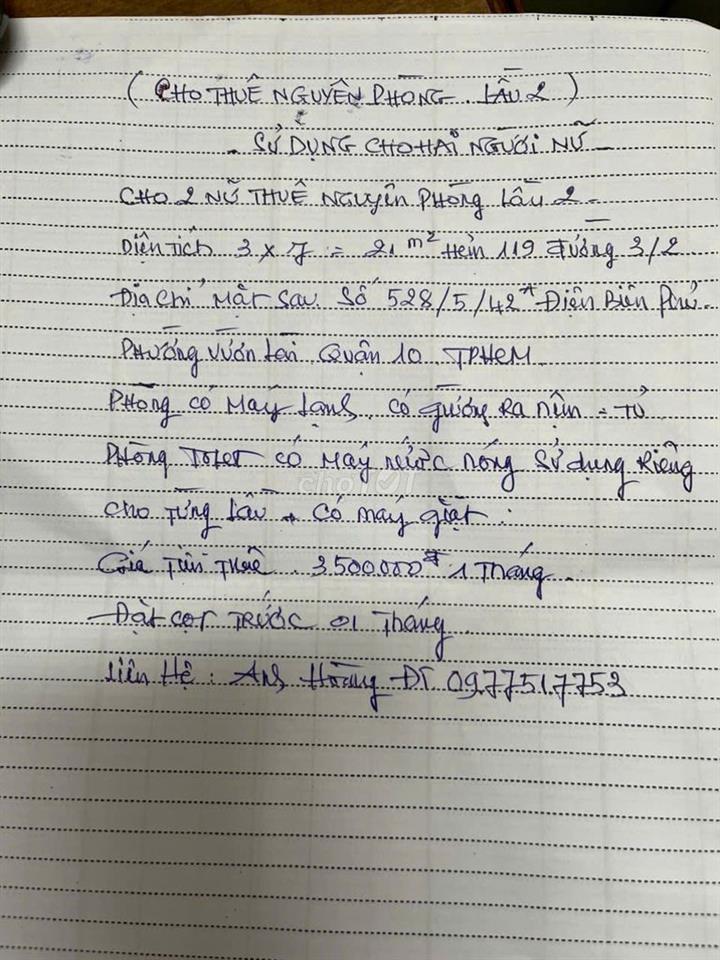 ( CHO THUÊ NGUYÊN PHÒNG LẦU 2 )
- SỬ DỤNG CHO HAI NGƯỜI NỮ -
CHO 2 NỮ THUÊ NGUYÊN PHÒNG LẦU 2 -
Diện tích 3 x 7 = 21 m² Hẻm 119 đường 3/2
Địa chỉ mặt sau số 528/5/42 Điện Biên Phủ.
PHƯỜNG VƯỜN Lài Quận 10 TPHCM
PHÒNG CÓ MÁY Lạnh, CÓ giường Ra nệm = TỦ
PHÒNG Tolet CÓ MÁY NƯỚC NÓNG SỬ dụng Riêng
chợ TỐT
CHO TỪNG LẦU - CÓ máy giặt :
Giá Tiền Thuê 3500.000đ 1 Tháng -
Đặt cọt TRƯỚC 01 Tháng.
Liên Hệ : Anh Hoàng ĐT 0977517753